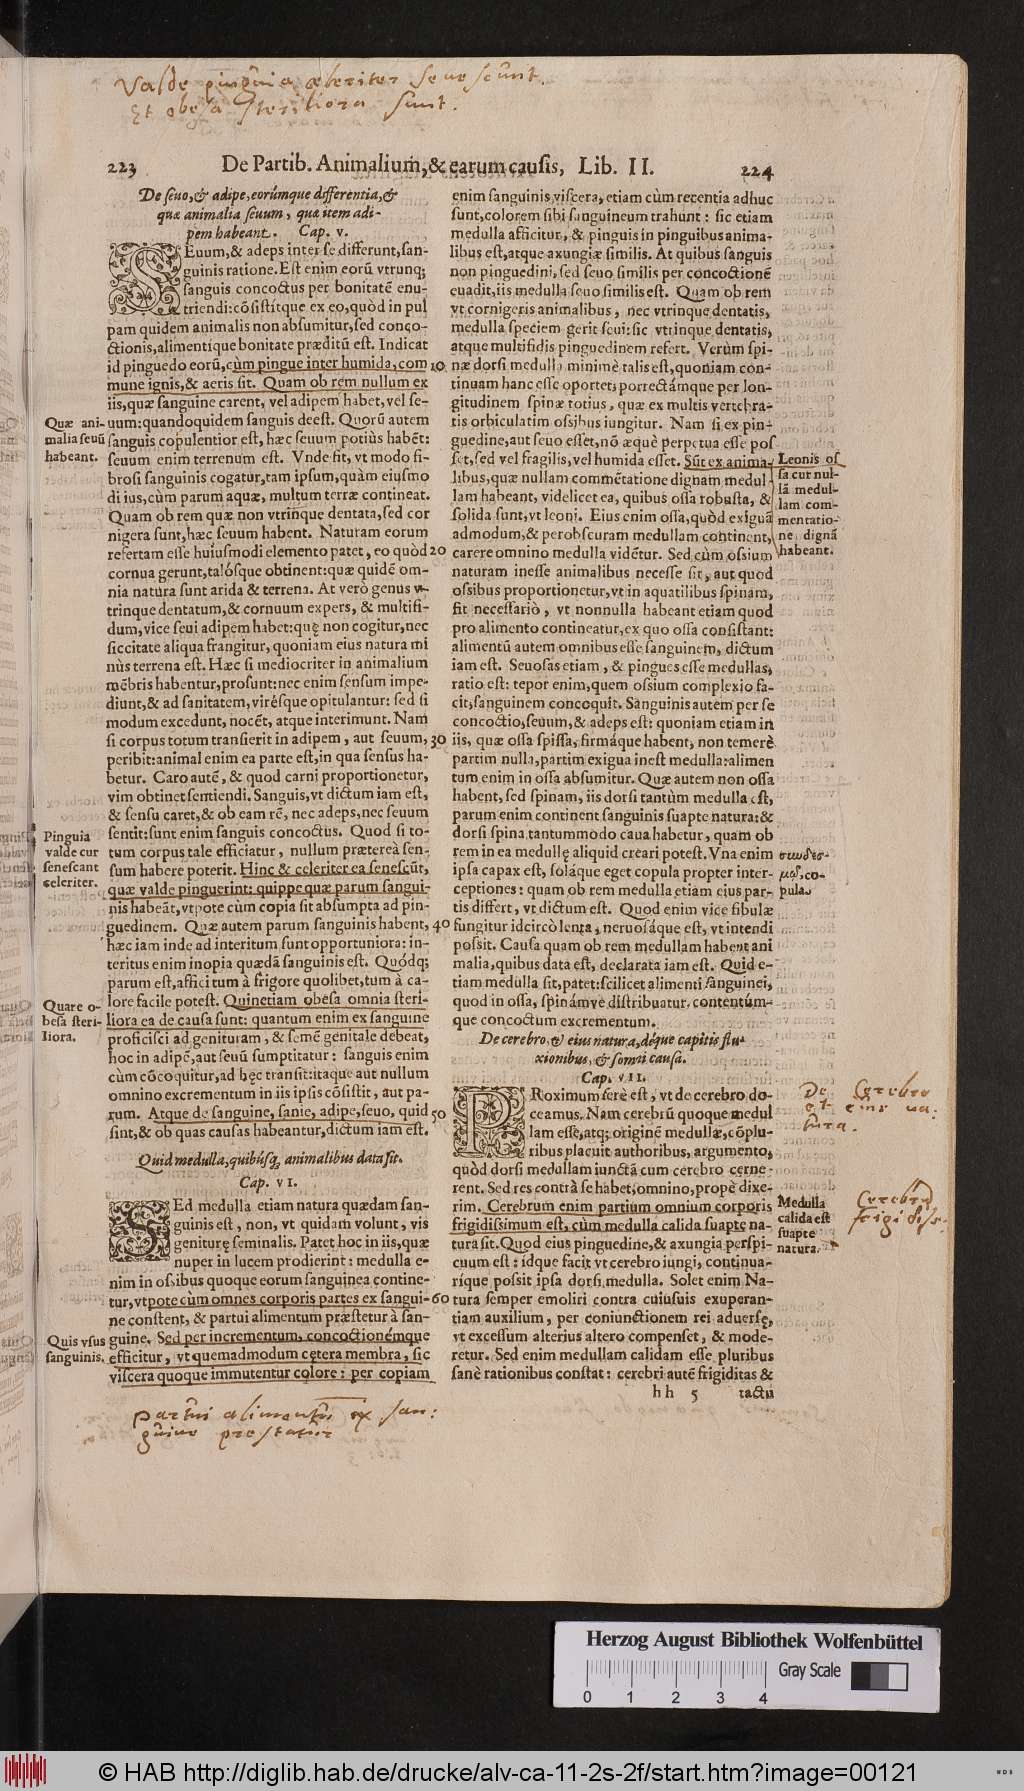 Valde pinguia celeriter senescunt.
Et obesa steriliora sunt.
223 De Partib. Animalium, & earum causis, Lib. II. 224
De seuo, & adipe, eorúmque differentia, &
quæ animalia seuum, quæ item adi-
pem habeant. Cap. V.
SEuum, & adeps inter se differunt, san-
guinis ratione. Est enim eorū vtrunq;
sanguis concoctus per bonitatē enu-
triendi: cōsistítque ex eo, quòd in pul
pam quidem animalis non absumitur, sed conço-
ctionis, alimentíque bonitate præditū est. Indicat
id pinguedo eorū, cùm pingue inter humida, com 10
mune ignis, & aeris sit. Quam ob rem nullum ex
iis, quæ sanguine carent, vel adipem habet, vel se-
uum: quandoquidem sanguis deest. Quorū autem
sanguis copulentior est, hæc seuum potiùs habēt:
seuum enim terrenum est. Vnde fit, vt modo fi-
brosi sanguinis cogatur, tam ipsum, quàm eiusmo
di ius, cùm parum aquæ, multum terræ contineat.
Quam ob rem quæ non vtrinque dentata, sed cor
nigera sunt, hæc seuum habent. Naturam eorum
refertam esse huiusmodi elemento patet, eo quòd 20
cornua gerunt, talósque obtinent: quæ quidē om-
nia natura sunt arida & terrena. At verò genus v-
trinque dentatum, & cornuum expers, & multifi-
dum, vice seui adipem habet: quę non cogitur, nec
siccitate aliqua frangitur, quoniam eius natura mi
nùs terrena est. Hæc si mediocriter in animalium
mēbris habentur, prosunt: nec enim sensum impe-
diunt, & ad sanitatem, virésque opitulantur: sed si
modum excedunt, nocēt, atque interimunt. Nam
si corpus totum transierit in adipem, aut seuum, 30
peribit: animal enim ea parte est, in qua sensus ha-
betur. Caro autē, & quod carni proportionetur,
vim obtinet sentiendi. Sanguis, vt dictum iam est,
& sensu caret, & ob eam rē, nec adeps, nec seuum
sentit: sunt enim sanguis concoctus. Quod si to-
tum corpus tale efficiatur, nullum prætereà sen-
sum habere poterit. Hinc & celeriter ea senescūt,
quæ valde pinguerint: quippe quæ parum sangui-
nis habeāt, vtpote cùm copia sit absumpta ad pin-
guedinem. Quæ autem parum sanguinis habent, 40
hæc iam inde ad interitum sunt opportuniora: in-
teritus enim inopia quædā sanguinis est. Quódq;
parum est, affici tum à frigore quolibet, tum à ca-
lore facile potest. Quinetiam obesa omnia steri-
liora ea de causa sunt: quantum enim ex sanguine
proficisci ad genituram, & semē genitale debeat,
hoc in adipē, aut seuū sumptitatur: sanguis enim
cùm cōcoquitur, ad hęc transit: itaque aut nullum
omnino excrementum in iis ipsis cōsistit, aut pa-
rum. Atque de sanguine, sanie, adipe, seuo, quid 50
sint, & ob quas causas habeantur, dictum iam est.
Quid medulla, quibúsq; animalibus data sit.
Cap. VI.
SEd medulla etiam natura quædam san-
guinis est, non, vt quidam volunt, vis
geniturę seminalis. Patet hoc in iis, quæ
nuper in lucem prodierint: medulla e-
nim in ossibus quoque eorum sanguinea contine-
tur, vtpote cùm omnes corporis partes ex sangui- 60
ne constent, & partui alimentum præstetur à san-
guine. Sed per incrementum, concoctionémque
efficitur, vt quemadmodum cętera membra, sic
viscera quoque immutentur colore: per copiam
Quæ ani-
malia seuū
habeant.
Pinguia
valde cur
senescant
celeriter.
Quare o-
besa steri-
liora.
Quis vsus
sanguinis.
partui alimentum ex san:
guine prestatur
enim sanguinis viscera, etiam cùm recentia adhuc
sunt, colorem sibi sanguineum trahunt: sic etiam
medulla afficitur, & pinguis in pinguibus anima-
libus est, atque axungiæ similis. At quibus sanguis
non pinguedini, sed seuo similis per concoctionē
euadit, iis medulla seuo similis est. Quam ob rem
vt cornigeris animalibus, nec vtrinque dentatis,
medulla speciem gerit seui: sic vtrinque dentatis,
atque multifidis pinguedinem refert. Verùm spi-
næ dorsi medulla minimè talis est, quoniam con-
tinuam hanc esse oportet, porrectámque per lon-
gitudinem spinæ totius, quæ ex multis vertebra-
tis orbiculatim ossibus iungitur. Nam si ex pin-
guedine, aut seuo esset, nō æquè perpetua esse pos
set, sed vel fragilis, vel humida esset. Sūt ex anima-
libus, quæ nullam commētatione dignam medul
lam habeant, videlicet ea, quibus ossa robusta, &
solida sunt, vt leoni. Eius enim ossa, quòd exiguā
admodum, & perobscuram medullam continent,
carere omnino medulla vidētur. Sed cùm ossium
naturam inesse animalibus necesse sit, aut quod
ossibus proportionetur, vt in aquatilibus spinam,
fit necessariò, vt nonnulla habeant etiam quod
pro alimento contineatur, ex quo ossa consistant:
alimentū autem omnibus esse sanguinem, dictum
iam est. Seuosas etiam, & pingues esse medullas,
ratio est: tepor enim, quem ossium complexio fa-
cit, sanguinem concoquit. Sanguinis autem per se
concoctio, seuum, & adeps est: quoniam etiam in
iis, quæ ossa spissa, firmáque habent, non temerè
partim nulla, partim exigua inest medulla: alimen
tum enim in ossa absumitur. Quæ autem non ossa
habent, sed spinam, iis dorsi tantùm medulla est,
parum enim continent sanguinis suapte natura: &
dorsi spina tantummodo caua habetur, quam ob
rem in ea medullę aliquid creari potest. Vna enim
ipsa capax est, soláque eget copula propter inter-
ceptiones: quam ob rem medulla etiam eius par-
tis differt, vt dictum est. Quod enim vice fibulæ
fungitur idcircò lenta, neruosáque est, vt intendi
possit. Causa quam ob rem medullam habent ani
malia, quibus data est, declarata iam est. Quid e-
tiam medulla sit, patet: scilicet alimenti sanguinei,
quod in ossa, spinámve distribuatur, contentúm-
que concoctum excrementum.
De cerebro, & eius natura, déque capitis flu-
xionibus, & somni causa.
Cap. VII.
PRoximum ferè est, vt de cerebro do-
ceamus. Nam cerebrū quoque medul
lam esse, atq; originē medullæ, cōplu-
ribus placuit authoribus, argumento,
quòd dorsi medullam iunctā cum cerebro cerne-
rent. Sed res contrà se habet, omnino, propè dixe-
rim. Cerebrum enim partium omnium corporis
frigidissimum est, cùm medulla calida suapte na-
tura sit. Quod eius pinguedine, & axungia perspi-
cuum est: idque facit vt cerebro iungi, continua-
ríque possit ipsa dorsi medulla. Solet enim Na-
tura semper emoliri contra cuiusuis exuperan-
tiam auxilium, per coniunctionem rei aduersę,
vt excessum alterius altero compenset, & mode-
retur. Sed enim medullam calidam esse pluribus
sanè rationibus constat: cerebri autē frigiditas &
hh 5 tactu
Leonis os
sa cur nul-
lā medul-
lam com-
mentatio-
ne dignā
habeant.
συνδεσ-
μος, co-
pula.
De Cerebro
et eius na:
tura.
Medulla
calida est
suapte
natura.
Cerebrū
frigidiss:
Herzog August Bibliothek Wolfenbüttel
Gray Scale
0 1 2 3 4
© HAB http://diglib.hab.de/drucke/alv-ca-11-2s-2f/start.htm?image=00121